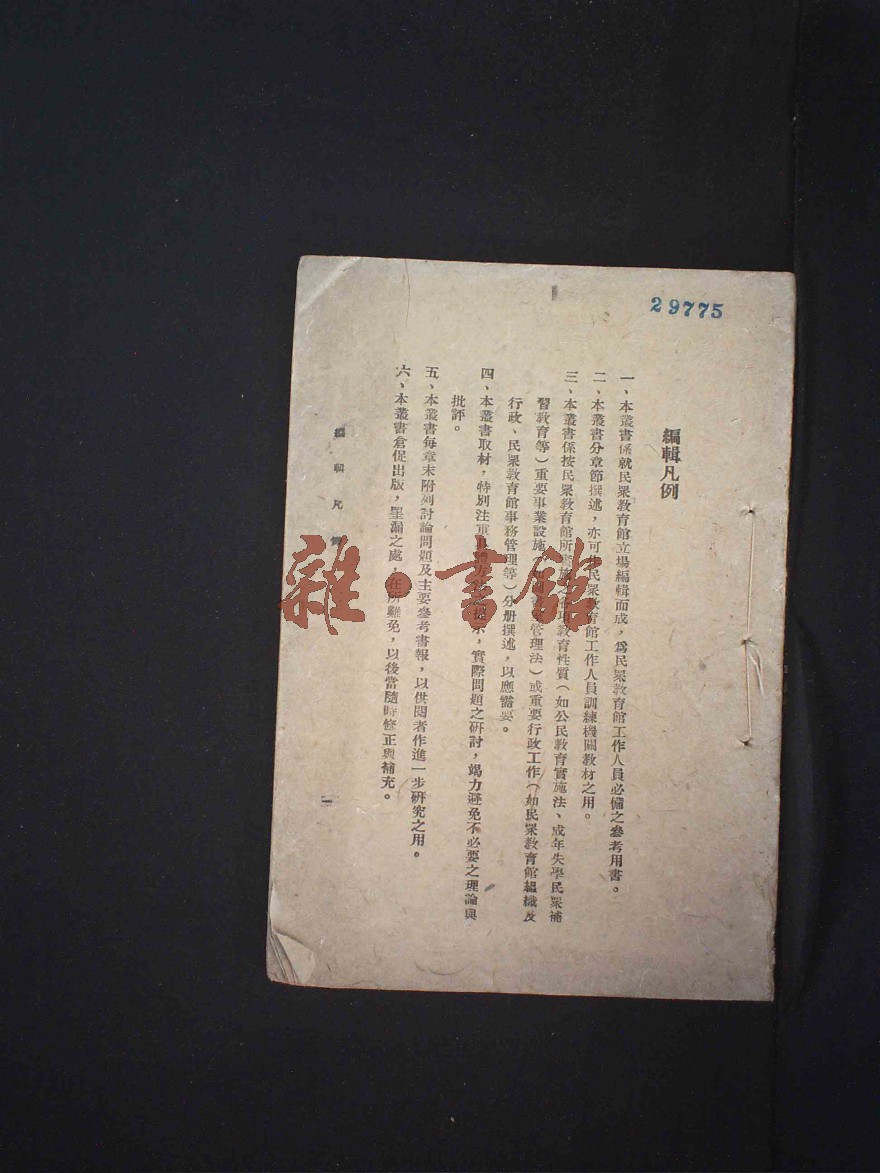 29775
編輯凡例
一、本叢書係就民眾教育館立場編輯而成，爲民眾教育館工作人員必備之參考用書。
二、本叢書分章節撰述，亦可 民眾教育館工作人員訓練機關教材之用。
三、本叢書係按民眾教育館所 施 教育性質（如公民教育實施法、成年失學民眾補
習教育等）重要事業設施 管理法）或重要行政工作（如民眾教育館組織及
行政、民眾教育館事務管理等）分册撰述，以應需要。
四、本叢書取材，特別注重 示，實際問題之研討，竭力避免不必要之理論與
批評。
五、本叢書每章末附列討論問題及主要參考書報，以供閱者作進一步研究之用。
六、本叢書倉促出版，罣漏之處，在所難免，以後當隨時修正與補充。
編輯凡
一
雜·書館